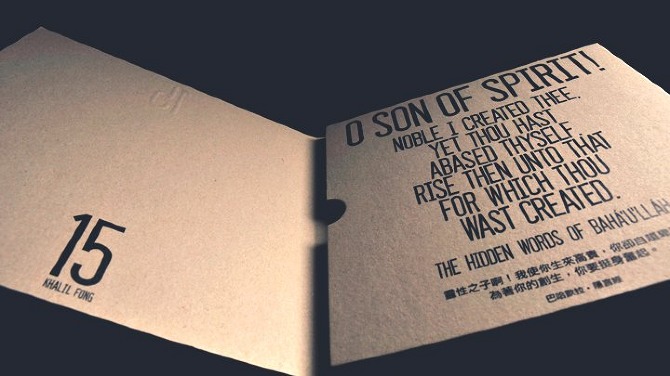 15
KHALIL FONG
O SON OF SPIRIT!
NOBLE I CREATED THEE,
YET THOU HAST
ABASED THYSELF
RISE THEN UNTO THAT
FOR WHICH THOU
WAST CREATED.
THE HIDDEN WORDS OF BAHÁ'U'LLÁH
靈性之子啊!我使你生來高貴,你卻自
為著你的創生,你要挺身奮起。
巴哈歐拉・隱言經